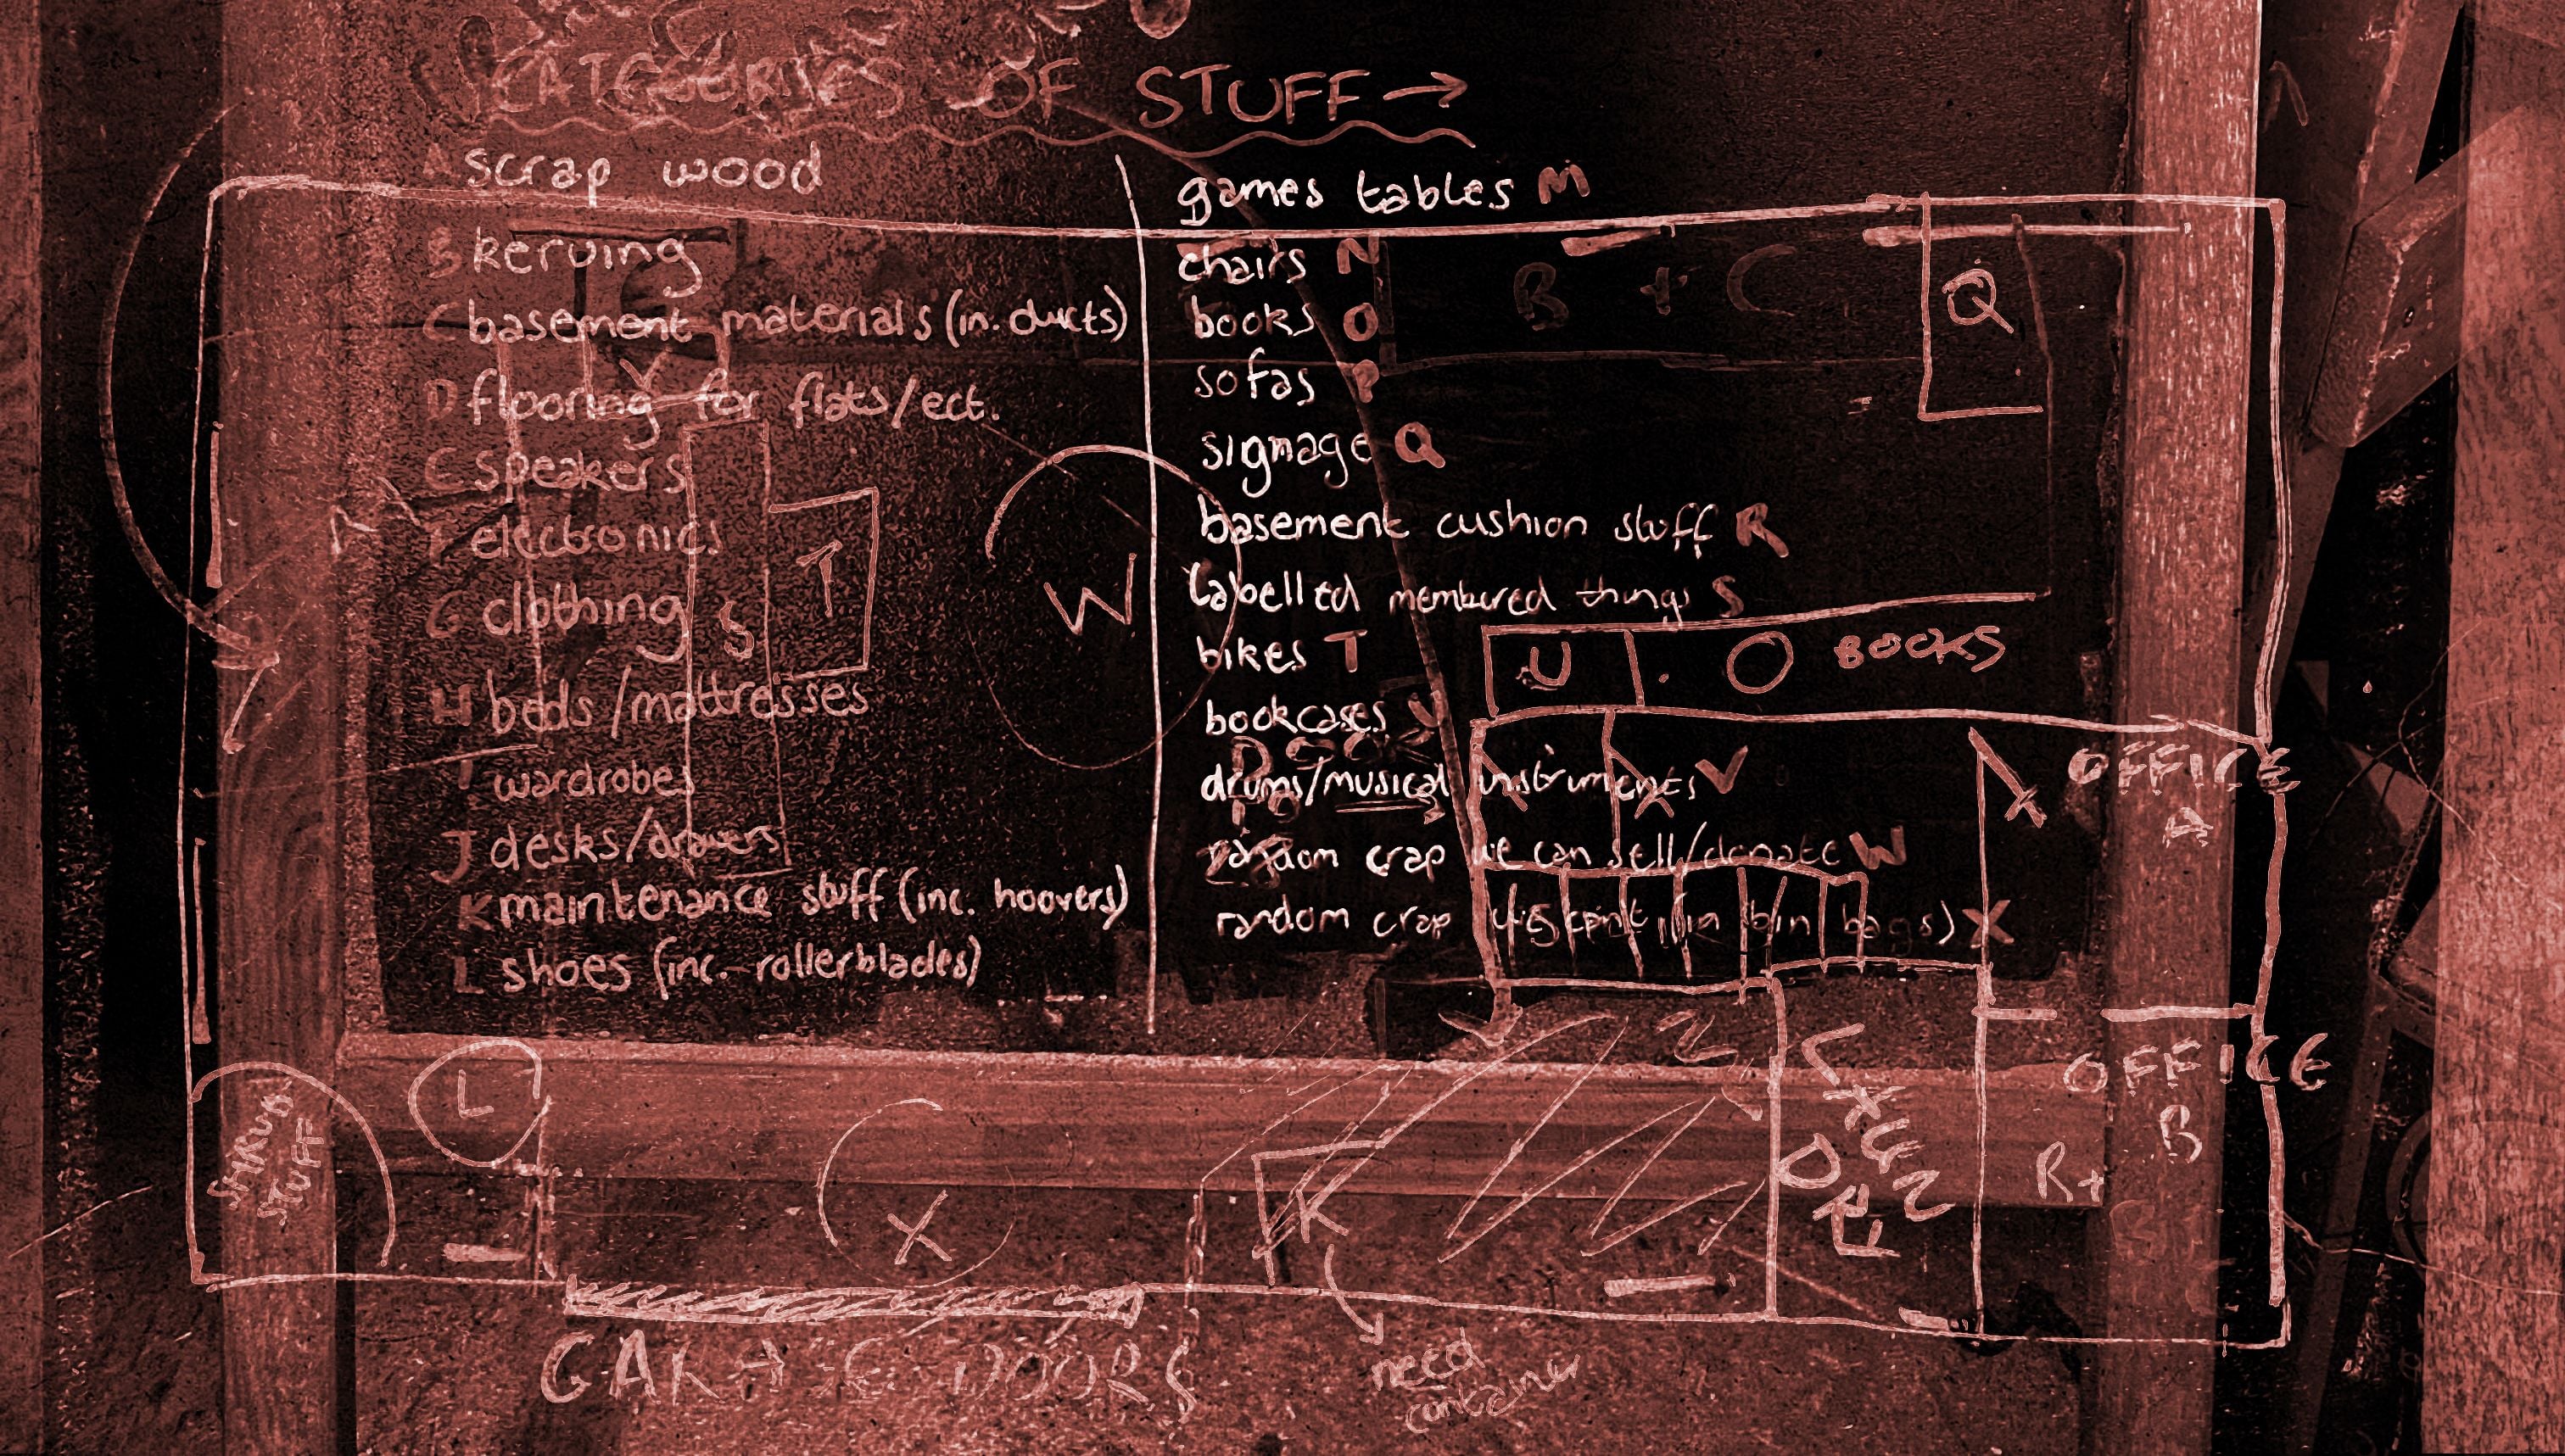 CATEGORIES OF STUFF →
A scrap wood
B kerving
C basement materials (in. ducts)
D flooring for flats/ect.
speakers
electronics
G clothing
H beds/mattresses
I wardrobes
J desks/drawers
K maintenance stuff (inc. hoovers)
L shoes (inc. rollerblades)
games tables M
chairs N
books O
sofas P
signage Q
basement cushion stuff R
labelled membered things S
bikes T
bookcases U
drums/musical instruments V
random crap we can sell/donate W
random crap (in bin bags) X
B + C
Q
T
S
W
U O BOOKS
OFFICE
A
OFFICE
B
R+
STUFF
L
X
K
GARAGE DOORS
need
container